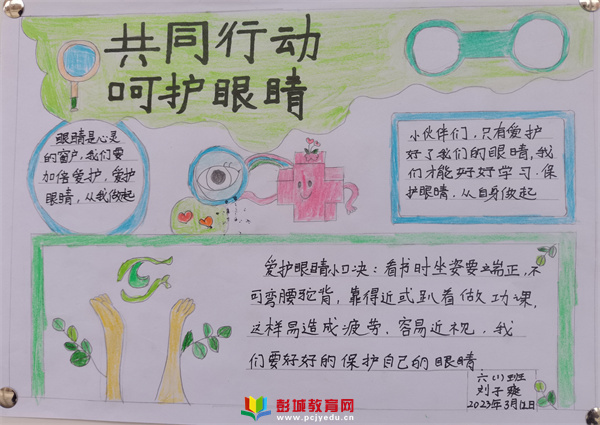 共同行动
呵护眼睛
眼睛是心灵
的窗户，我们要
加倍爱护，爱护
眼睛，从我做起
小伙伴们，只有爱护
好了我们的眼睛，我
们才能好好学习．保
护眼睛．从自身做起
爱护眼睛小口决：看书时坐姿要端正，不
可弯腰驼背，靠得近或趴着做功课，
这样易造成疲劳．容易近视．我
们要好好的保护自己的眼睛．
六(1)班
刘子璇
2023年3月12日
彭城教育网
www.pcjyedu.cn